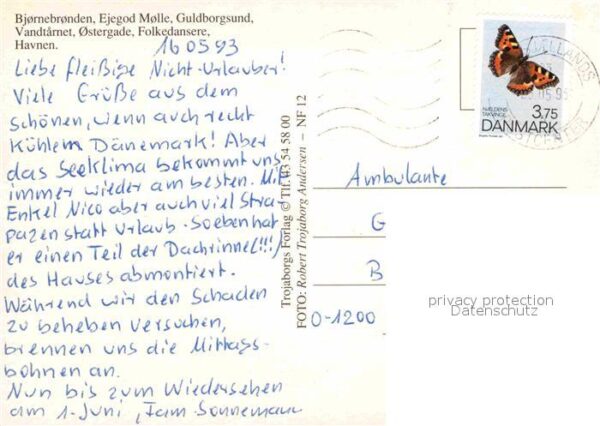 Bjørnebrønden, Ejegod Mølle, Guldborgsund,
Vandtårnet, Østergade, Folkedansere,
Havnen.
16 05 93
Liebe fleißige Nicht-Urlauber!
Viele Grüße aus dem
schönen, wenn auch recht
kühlem Dänemark! Aber
das Seeklima bekommt uns
immer wieder am besten. Mit
Enkel Nico aber auch viel Stra-
pazen statt Urlaub. Soeben hat
er einen Teil der Dachrinne(!!!)
des Hauses abmontiert.
Während wir den Schaden
zu beheben versuchen,
brennen uns die Mittags-
bohnen an.
Nun bis zum Wiedersehen
am 1. Juni, Fam. Sonnemann
Trojaborgs Forlag © Tlf. 03 54 58 00
FOTO: Robert Trojaborg Andersen - NF 12
NÆLDENS
TAKVINGE
3.75
DANMARK
Ambulante
G
B
O-1200
privacy protection
Datenschutz